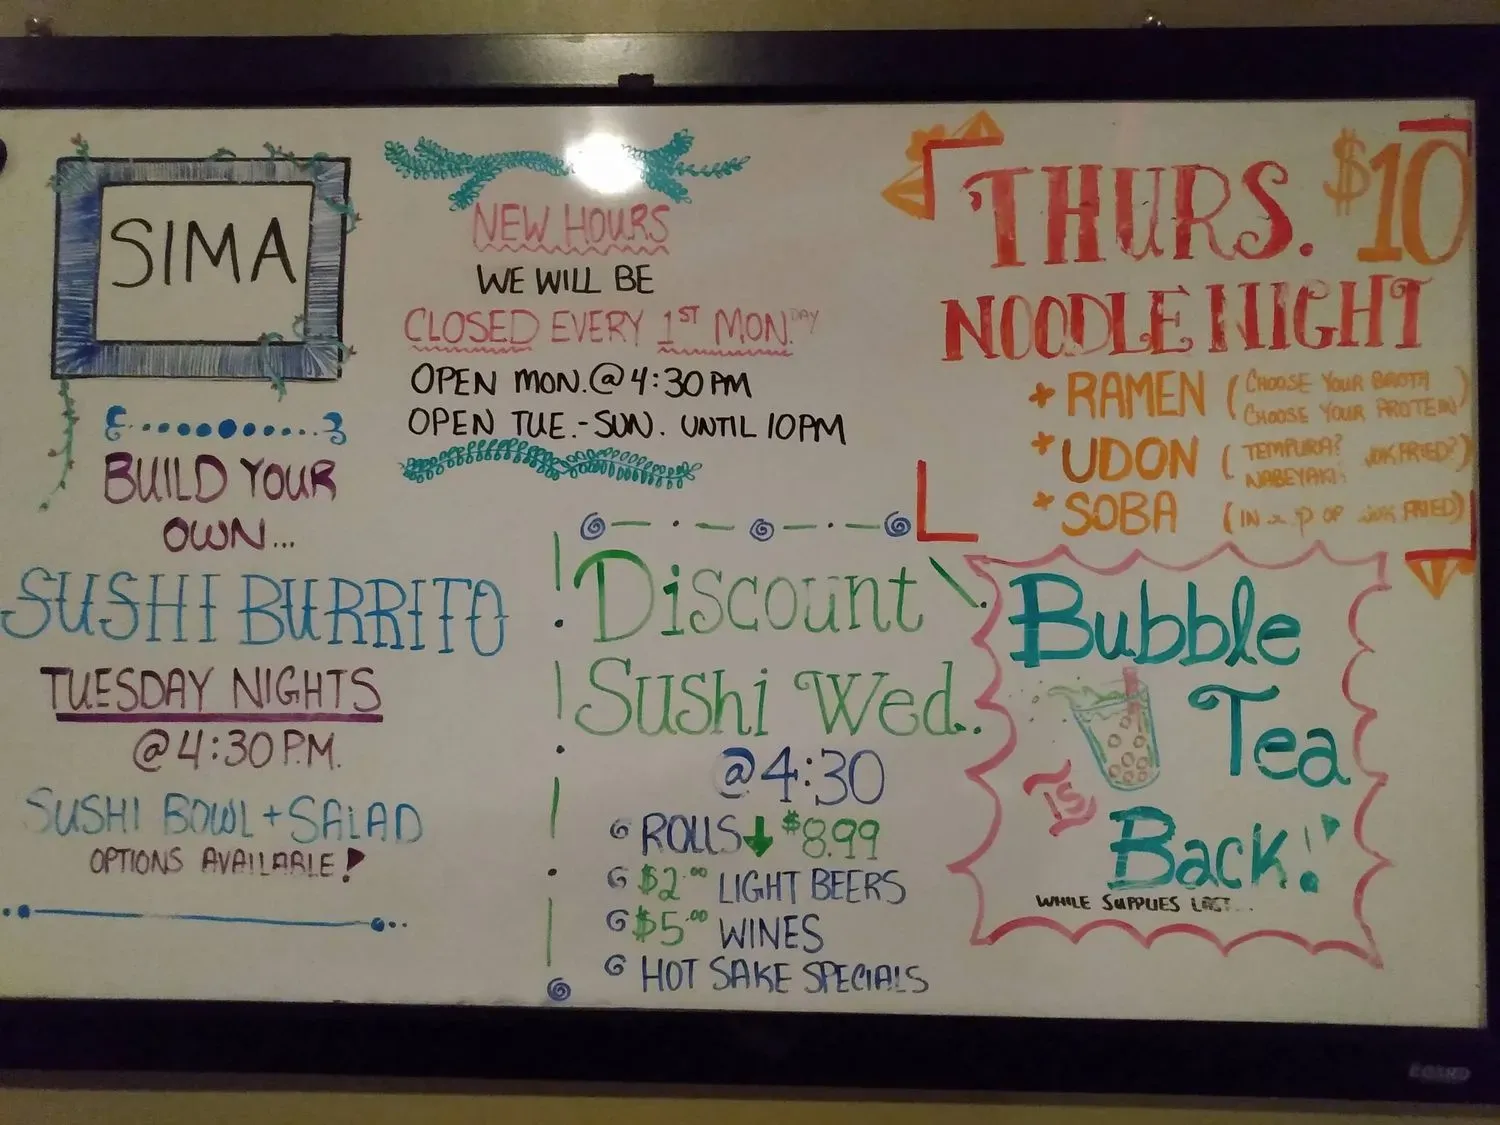 SIMA
BUILD YOUR
OWN...
SUSHI BURRITO
TUESDAY NIGHTS
@4:30P.M.
SUSHI BOWL + SALAD
OPTIONS AVAILABLE!
NEW HOURS
WE WILL BE
CLOSED EVERY 1ST MON.DAY
OPEN MON.@4:30PM
OPEN TUE.-SUN. UNTIL 10PM
Discount
Sushi Wed..
@4:30
ROLLS↓ $8.99
$2.00 LIGHT BEERS
$5.00 WINES
HOT SAKE SPECIALS
THURS. $10
NOODLE NIGHT
* RAMEN (CHOOSE YOUR BROTH
CHOOSE YOUR PROTEIN)
* UDON (TEMPURA? FRIED?)
NABEYAKI
* SOBA (IN OR FRIED)
Bubble
Tea
IS
Back!
WHILE SUPPLIES LAST...